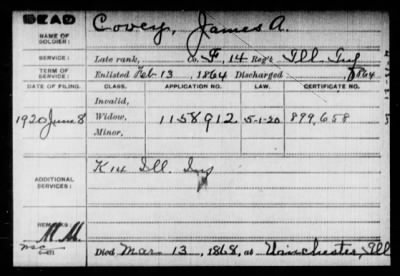 DEAD
NAME OF SOLDIER: Covey, James A.
SERVICE: Late rank, Co. F, 14 Reg't Ill. Inf
TERM OF SERVICE: Enlisted Feb 13, 1864 Discharged 1864
DATE OF FILING. CLASS. APPLICATION NO. LAW. CERTIFICATE NO.
Invalid,
1920 June 8 Widow, 1158912 5-1-20 899,658
Minor,
K 14 Ill. Inf
ADDITIONAL SERVICES:
REMARKS:
Died Mar 13, 1868, at Winchester, Ill